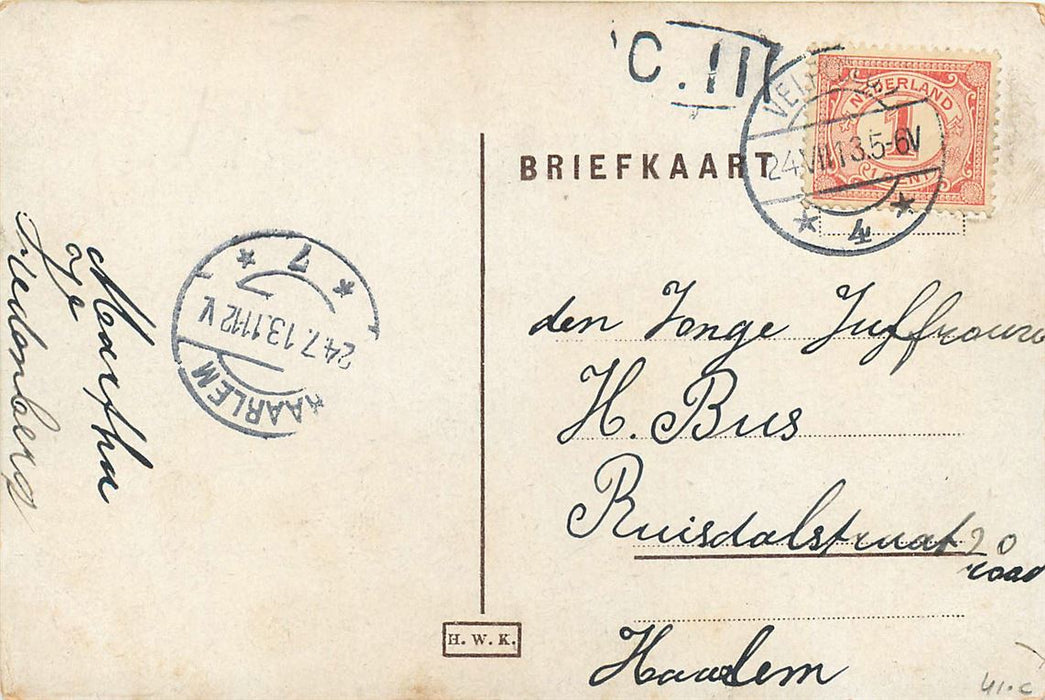 C.II
BRIEFKAART
NEDERLAND
1
1 CENT
24.VII.13.5-6V
4
den Jonge Juffrouw
H. Bus
Ruisdalstraat 20
rood
Haarlem
7
24.7.13.11-12 V
HAARLEM
Martha
H. W. K.
41.c